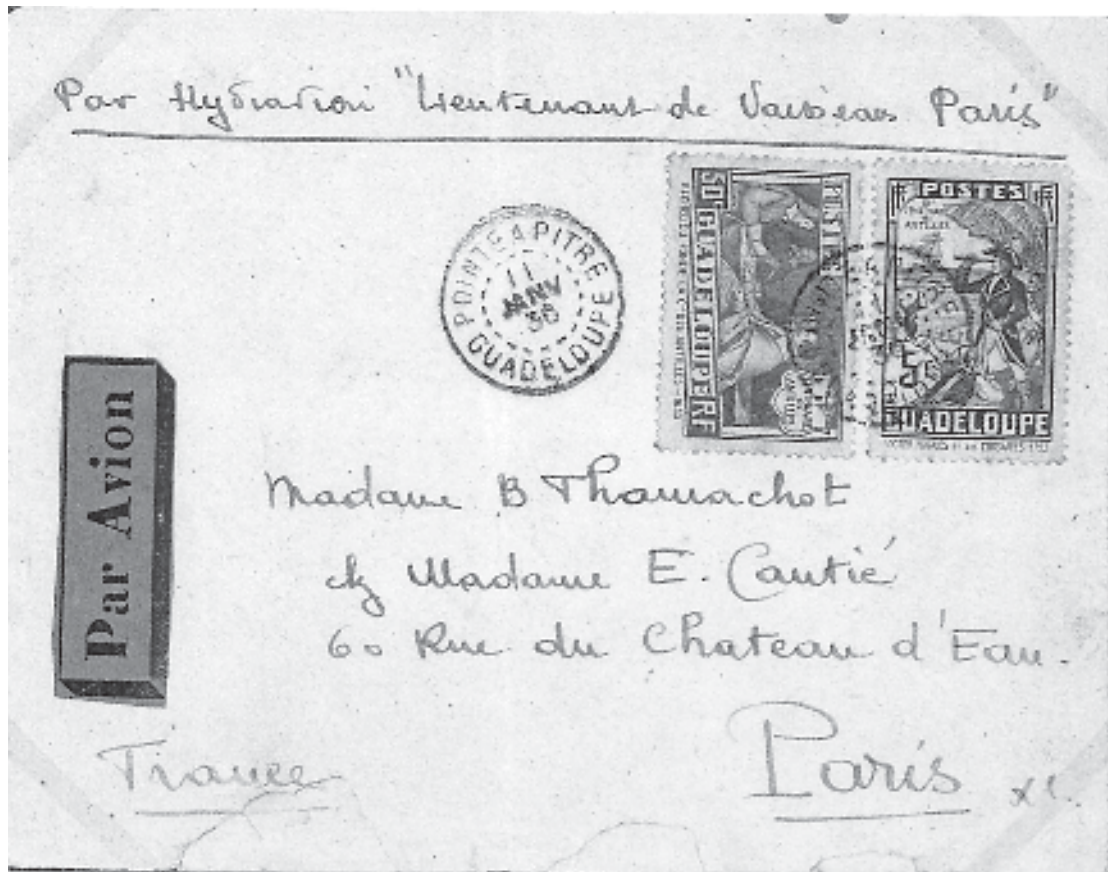 Par Hydravion "Lieutenant de Vaisseau Paris"
POINTE A PITRE
11
JANV
36
GUADELOUPE
POSTES
50c GUADELOUPE RF
POSTES
ANTILLES
GUADELOUPE
Par Avion
Madame B Thomachot
chz Madame E. Cautié
60 Rue du Chateau d'Eau.
Paris
France